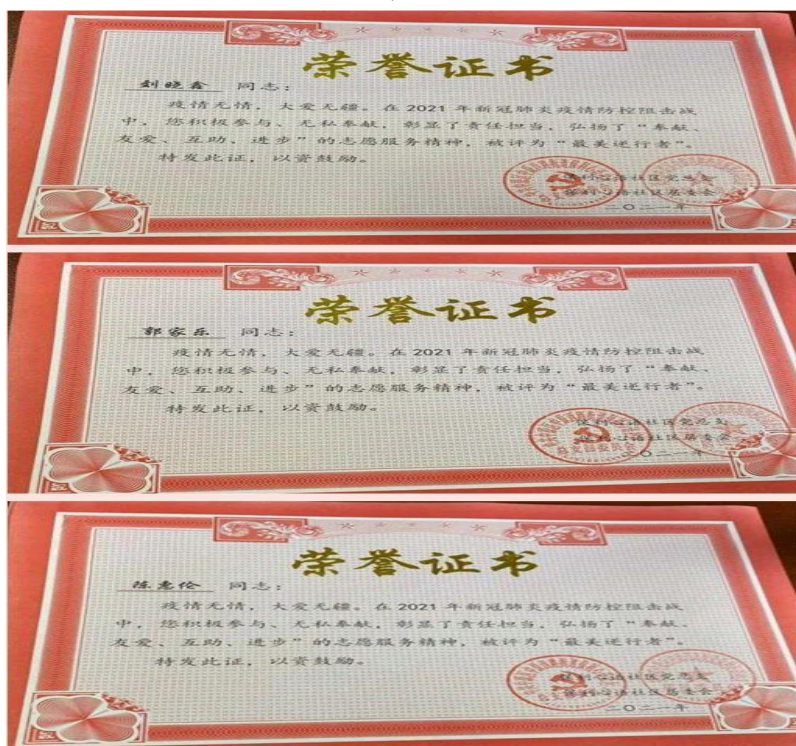 荣誉证书
刘晓鑫 同志：
疫情无情，大爱无疆。在2021年新冠肺炎疫情防控阻击战
中，您积极参与、无私奉献，彰显了责任担当，弘扬了“奉献、
友爱、互助、进步”的志愿服务精神，被评为“最美逆行者”。
特发此证，以资鼓励。
保利心语社区党总支
保利心语社区居委会
二〇二一年
荣誉证书
郭家乐 同志：
疫情无情，大爱无疆。在2021年新冠肺炎疫情防控阻击战
中，您积极参与、无私奉献，彰显了责任担当，弘扬了“奉献、
友爱、互助、进步”的志愿服务精神，被评为“最美逆行者”。
特发此证，以资鼓励。
保利心语社区党总支
保利心语社区居委会
二〇二一年
荣誉证书
陈惠伦 同志：
疫情无情，大爱无疆。在2021年新冠肺炎疫情防控阻击战
中，您积极参与、无私奉献，彰显了责任担当，弘扬了“奉献、
友爱、互助、进步”的志愿服务精神，被评为“最美逆行者”。
特发此证，以资鼓励。
保利心语社区党总支
保利心语社区居委会
二〇二一年